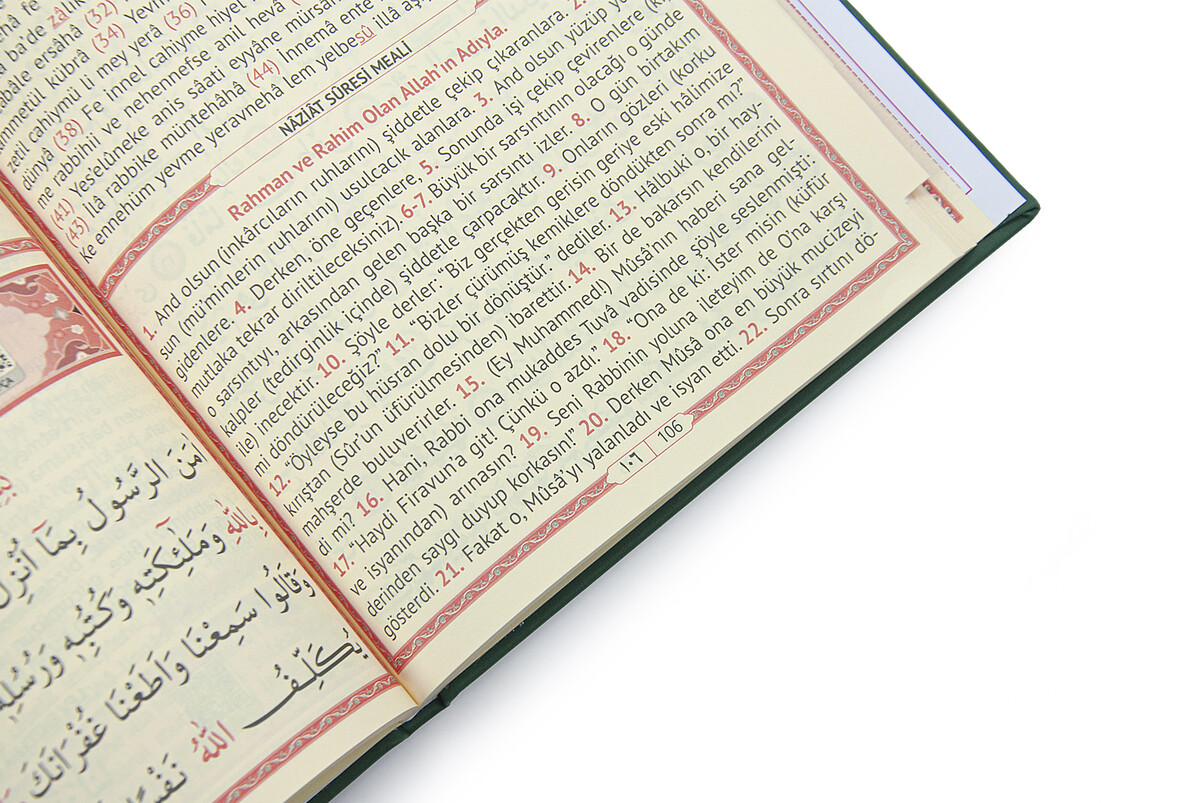 ba'de zâlik
(32)
ersâhâ
(34)
(36)
kübrâ
li mey yerâ
Fe innel cahiyme hiyel
(38)
rabbihiî ve nehennefse anil hevâ
(41) Yes'elûneke anis sâati eyyâne mürsâ
(43) İlâ rabbike müntehâhâ (44) İnnemâ ente
Ke ennehüm yevme yeravnehâ lem yelbesû illâ
NÂZİÂT SÛRESİ MEALİ
Rahman ve Rahim Olan Allah'ın Adıyla.
1. And olsun (inkârcıların ruhlarını) şiddetle çekip çıkaranlara. 2.
sun (müminlerin ruhlarını) usulcacık alanlara. 3. And olsun yüzüp
gidenlere. 4. Derken, öne geçenlere, 5. Sonunda işi çekip çevirenlere
mutlaka tekrar diriltileceksiniz). 6-7. Büyük bir sarsıntının olacağı o günde
o sarsıntıyı, arkasından gelen başka bir sarsıntı izler. 8. O gün birtakım
kalpler (tedirginlik içinde) şiddetle çarpacaktır. 9. Onların gözleri (korku
ile) inecektir. 10. Şöyle derler: “Biz gerçekten gerisin geriye eski hâlimize
mi döndürüleceğiz?” 11. “Bizler çürümüş kemiklere döndükten sonra mı?”
12. “Öyleyse bu hüsran dolu bir dönüştür.” dediler. 13. Hâlbuki o, bir hay-
kırıştan (Sûr'un üfürülmesinden) ibarettir. 14. Bir de bakarsın kendilerini
mahşerde buluverirler. 15. (Ey Muhammed!) Mûsânın haberi sana gel-
di mi? 16. Hani, Rabbi ona mukaddes Tuvâ vadisinde şöyle seslenmişti:
17. “Haydi Firavun'a git! Çünkü o azdı. 18. “Ona de ki: İster misin (küfür
ve isyanından) arınasın? 19. Seni Rabbinin yoluna ileteyim de Ona karşı
derinden saygı duyup korkasın!” 20. Derken Mûsâ ona en büyük mucizeyi
gösterdi. 21. Fakat o, Mûsâ'yı yalanladı ve isyan etti. 22. Sonra sırtını dö-
١٠٦ 106
اٰمَنَ الرَّسُولُ بِمَٓا اُنْزِلَ
بِاللّٰهِ وَمَلٰٓئِكَتِهٖ وَكُتُبِهٖ وَرُسُلِهٖ
وَقَالُوا سَمِعْنَا وَاَطَعْنَا غُفْرَانَكَ
يُكَلِّفُ اللّٰهُ نَفْسًا